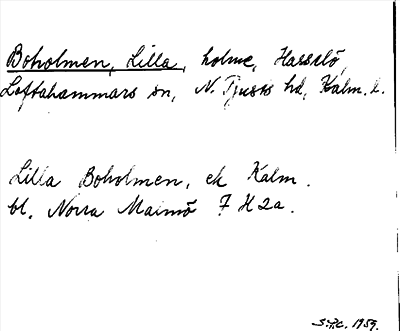 Boholmen, Lilla, holme, Hasselö,
Loftahammars sn, N. Tjusts hd, Kalm. l.
Lilla Boholmen, ek Kalm.
bl. Norra Malmö 7 H 2a.
1959.